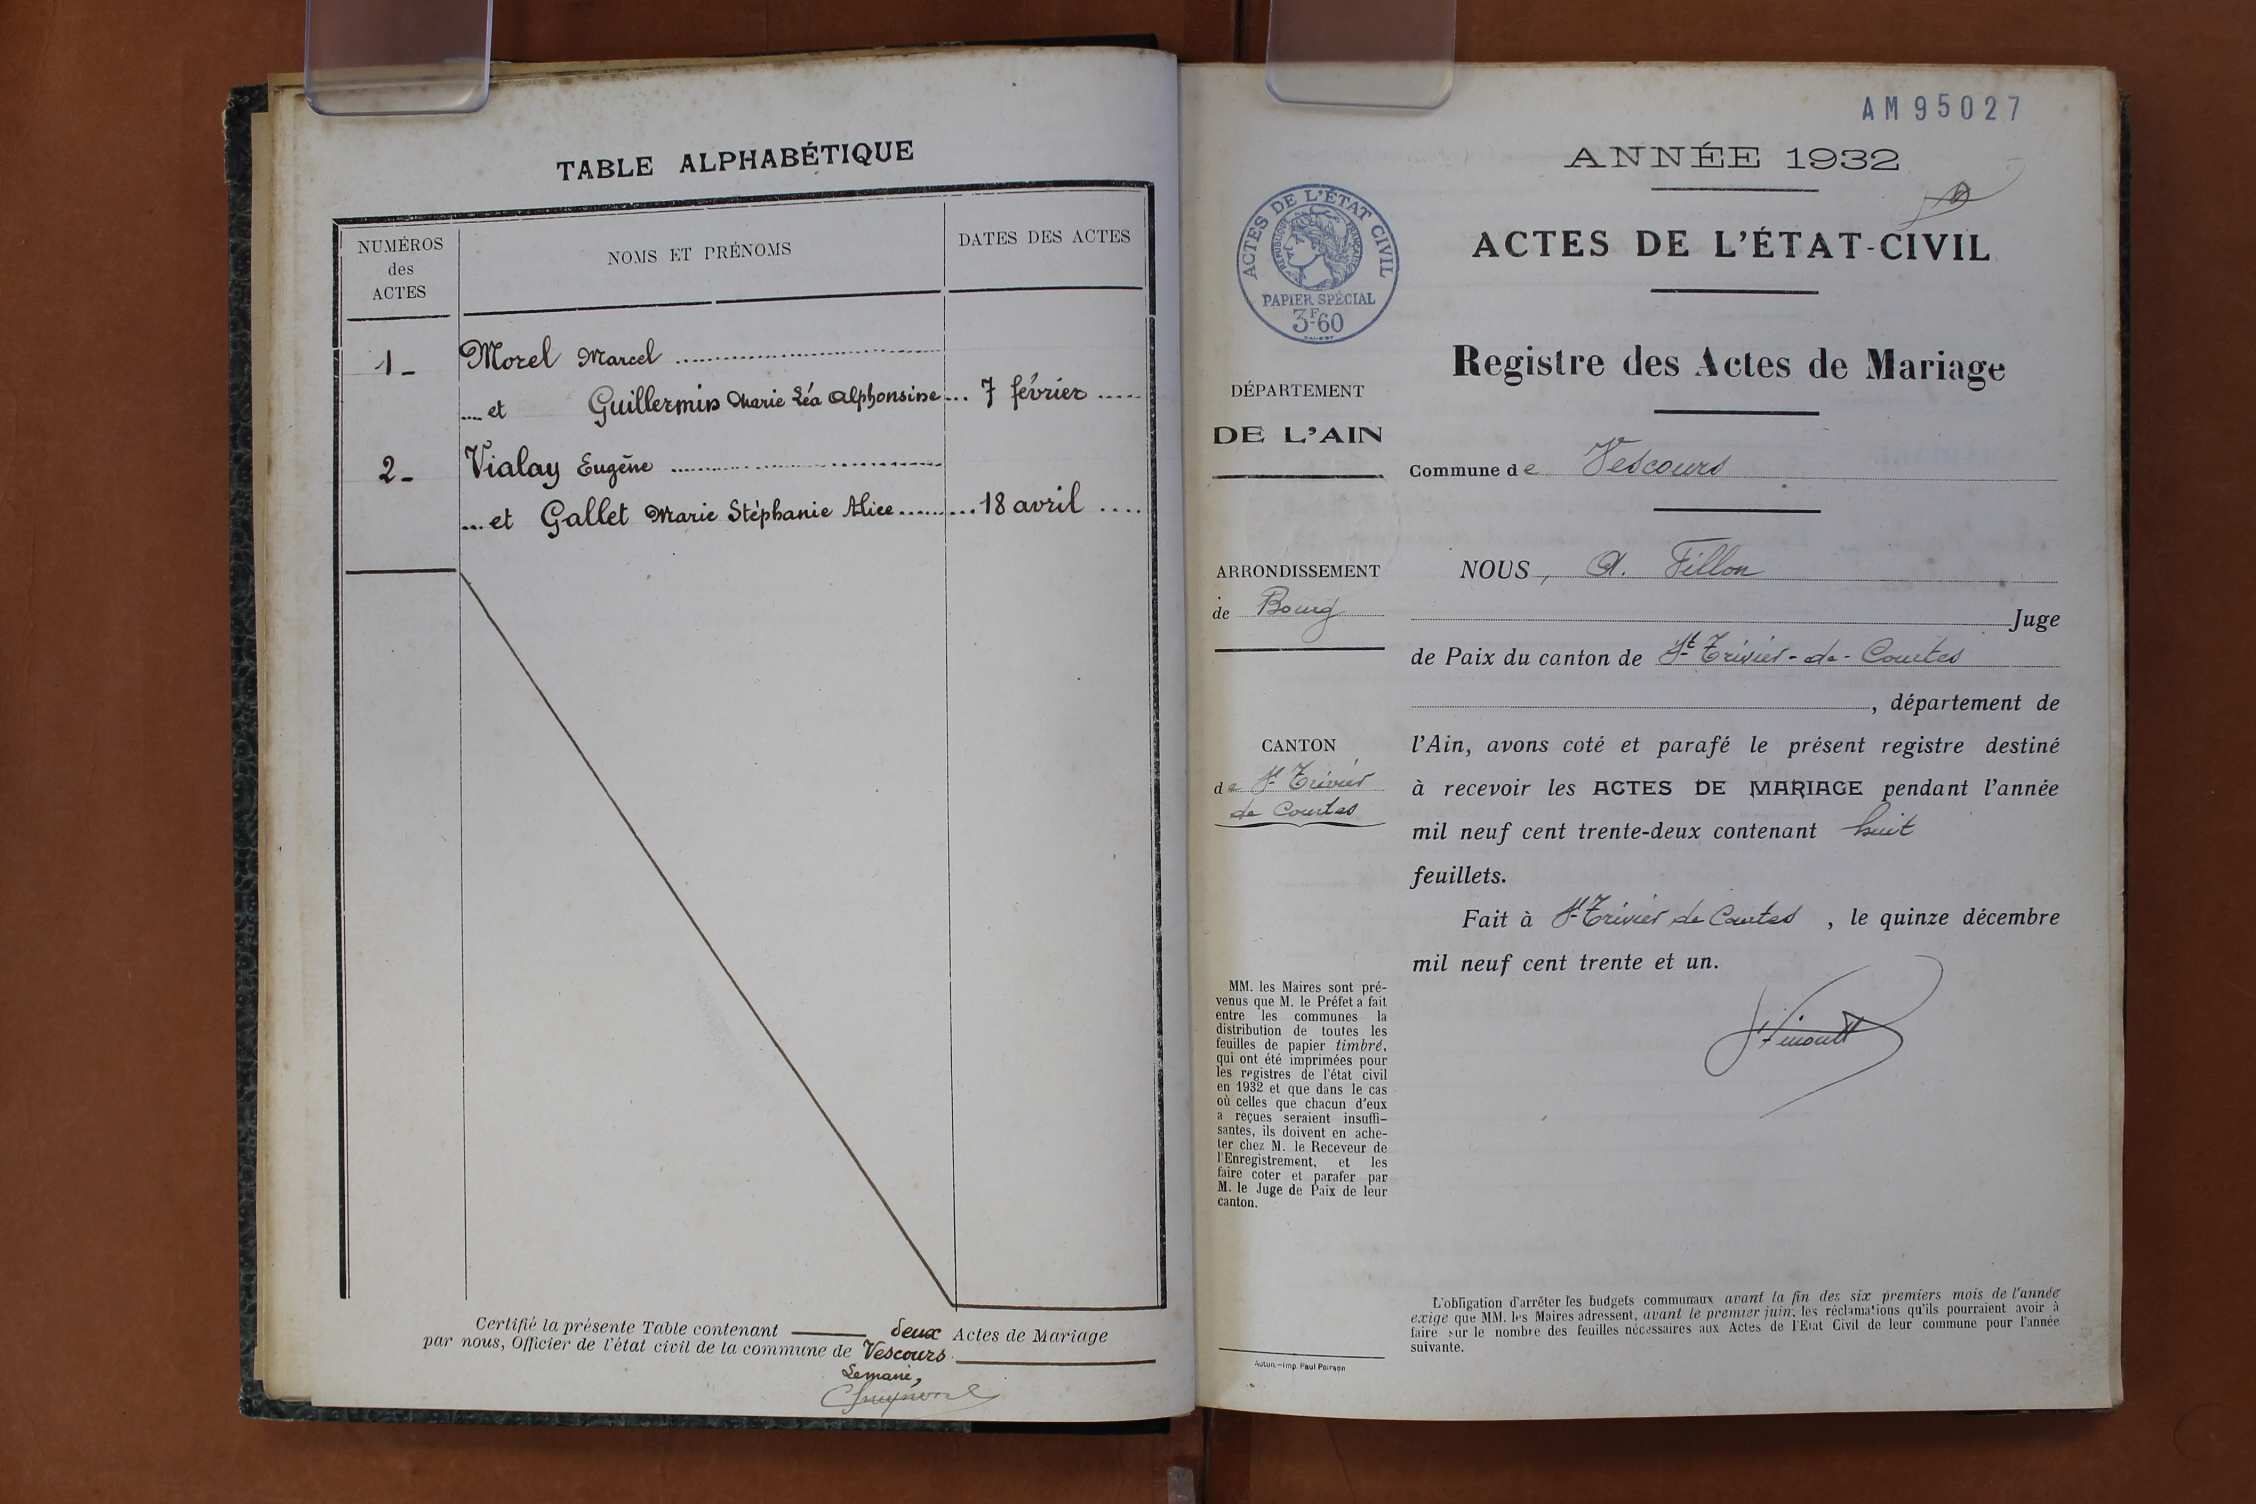 TABLE ALPHABÉTIQUE
NUMÉROS
des
ACTES
NOMS ET PRÉNOMS
DATES DES ACTES
1 - Morel Marcel
et Guillermin Marie Léa Alphonsine ... 7 février
2 - Vialay Eugène
et Gallet Marie Stéphanie Alice ... 18 avril
Certifié la présente Table contenant deux Actes de Mariage
par nous, Officier de l'état civil de la commune de Vescours
Le maire,
AM95027
ANNÉE 1932
ACTES DE L'ÉTAT CIVIL
RÉPUBLIQUE FRANÇAISE
PAPIER SPÉCIAL
3F60
ACTES DE L'ÉTAT-CIVIL
Registre des Actes de Mariage
DÉPARTEMENT
DE L'AIN
Commune de Vescours
ARRONDISSEMENT
de Bourg
NOUS, A. Fillon
Juge
de Paix du canton de St Trivier-de-Courtes
, département de
CANTON
de St Trivier
de Courtes
l'Ain, avons coté et parafé le présent registre destiné
à recevoir les ACTES DE MARIAGE pendant l'année
mil neuf cent trente-deux contenant huit
feuillets.
Fait à St Trivier de Courtes, le quinze décembre
mil neuf cent trente et un.
MM. les Maires sont pré-
venus que M. le Préfet a fait
entre les communes la
distribution de toutes les
feuilles de papier timbré,
qui ont été imprimées pour
les registres de l'état civil
en 1932 et que dans le cas
où celles que chacun d'eux
a reçues seraient insuffi-
santes, ils doivent en ache-
ter chez M. le Receveur de
l'Enregistrement, et les
faire coter et parafer par
M. le Juge de Paix de leur
canton.
L'obligation d'arrêter les budgets communaux avant la fin des six premiers mois de l'année
exige que MM. les Maires adressent, avant le premier juin, les réclamations qu'ils pourraient avoir à
faire sur le nombre des feuilles nécessaires aux Actes de l'Etat Civil de leur commune pour l'année
suivante.
Autun.—Imp. Paul Poirson